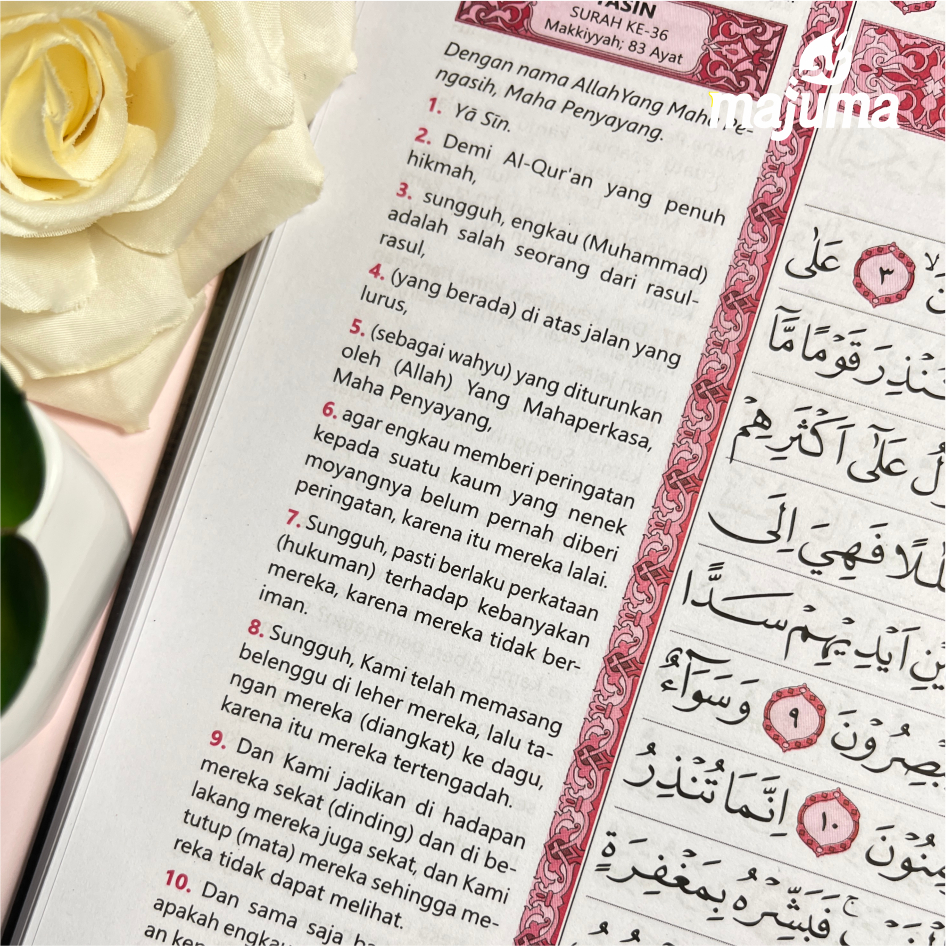 SURAH KE-36
Makkiyyah; 83 Ayat
majuma
Dengan nama AllahYang Maha Pe-
ngasih, Maha Penyayang.
1. Yā Sīn.
2. Demi Al-Qur'an yang penuh
hikmah,
3. sungguh, engkau (Muhammad)
adalah salah seorang dari rasul-
rasul,
4. (yang berada) di atas jalan yang
lurus,
5. (sebagai wahyu) yang diturunkan
oleh (Allah) Yang Mahaperkasa,
Maha Penyayang,
6. agar engkau memberi peringatan
kepada suatu kaum yang nenek
moyangnya belum pernah diberi
peringatan, karena itu mereka lalai.
7. Sungguh, pasti berlaku perkataan
(hukuman) terhadap kebanyakan
mereka, karena mereka tidak ber-
iman.
8. Sungguh, Kami telah memasang
belenggu di leher mereka, lalu ta-
ngan mereka (diangkat) ke dagu,
karena itu mereka tertengadah.
9. Dan Kami jadikan di hadapan
mereka sekat (dinding) dan di be-
lakang mereka juga sekat, dan Kami
tutup (mata) mereka sehingga me-
reka tidak dapat melihat.
10. Dan sama saja
apakah
an
٣ عَلٰى
قَوْمًا مَّآ
عَلٰٓى اَكْثَرِهِمْ
فَهِيَ اِلَى
اَيْدِيْهِمْ سَدًّا
٩ وَسَوَاۤءٌ
١٠ اِنَّمَا تُنْذِرُ
فَبَشِّرْهُ بِمَغْفِرَةٍ